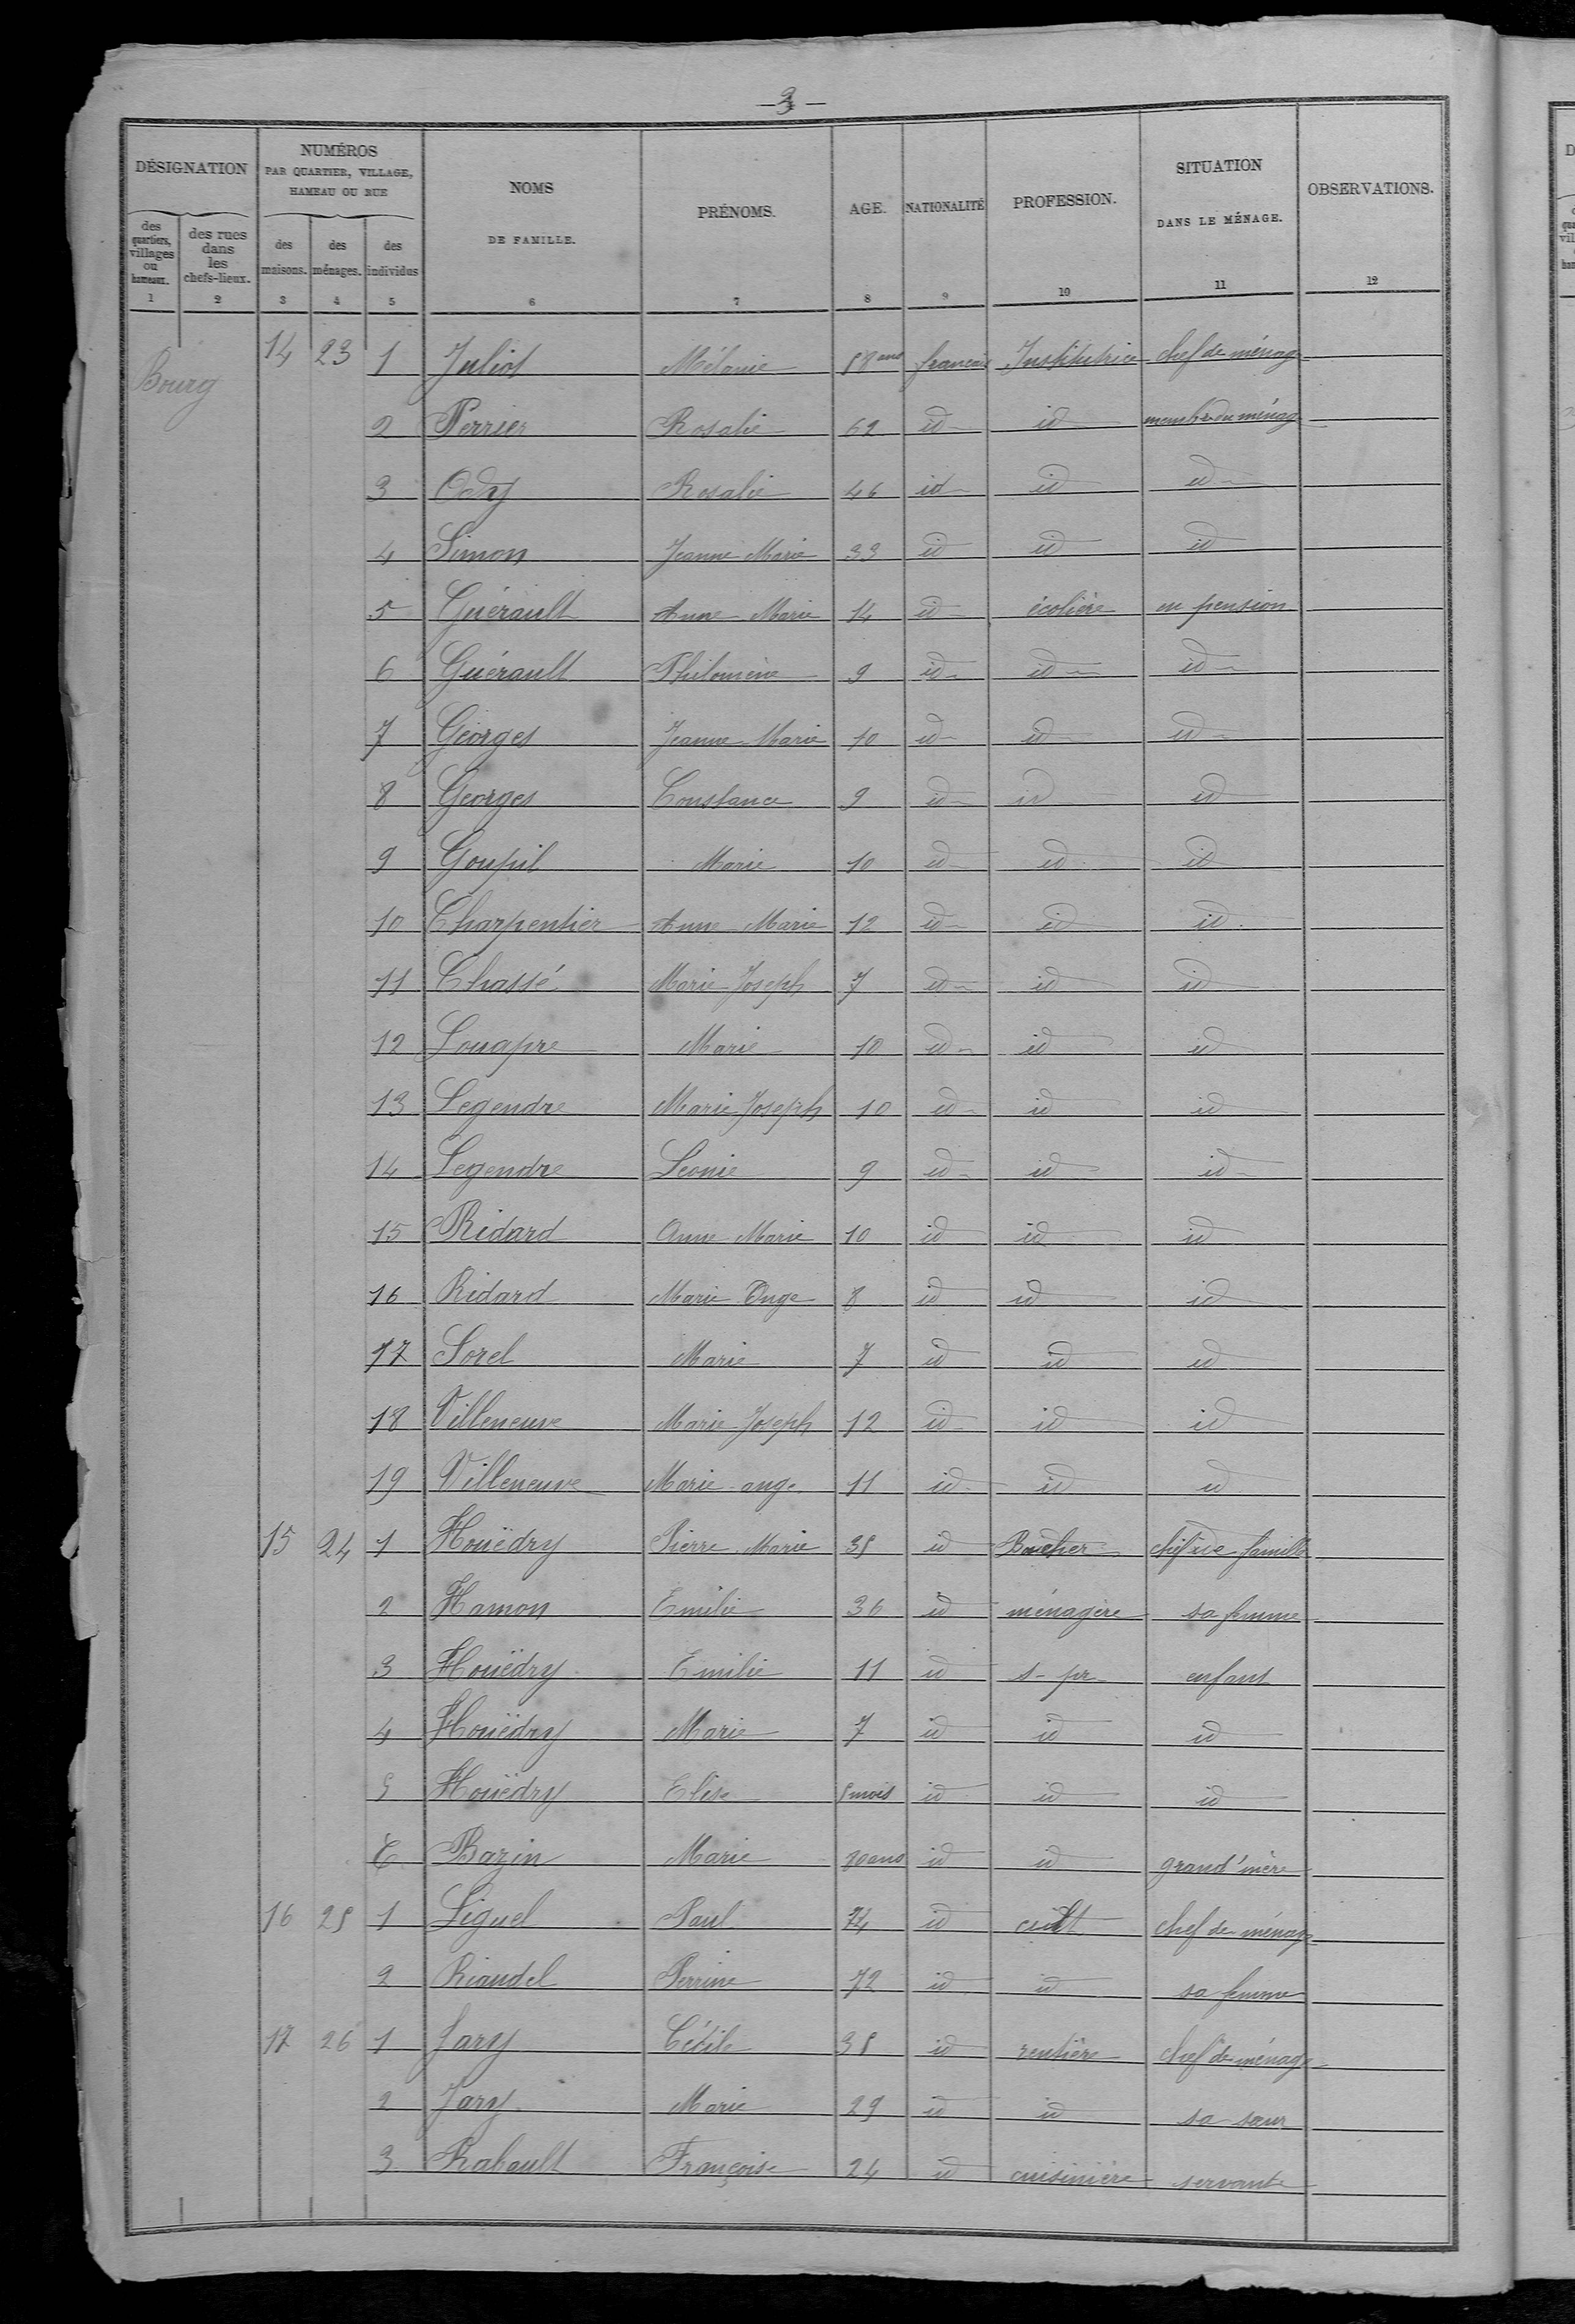 — 3 —
DÉSIGNATION | NUMÉROS PAR QUARTIER, VILLAGE, HAMEAU OU RUE | NOMS DE FAMILLE. | PRÉNOMS. | AGE. | NATIONALITÉ | PROFESSION. | SITUATION DANS LE MÉNAGE. | OBSERVATIONS.
des quartiers, villages ou hameaux. | des rues dans les chefs-lieux. | des maisons. | des ménages. | des individus
1 2 3 4 5 6 7 8 9 10 11 12
Bourg 14 23 1 Juliot Mélanie 58 ans français Institutrice chef de ménage
2 Perrier Rosalie 62 id id membre du ménage
3 Ody Rosalie 46 id id id
4 Simon Jeanne Marie 33 id id id
5 Guérault Anne Marie 14 id écolière en pension
6 Guérault Philomène 9 id id id
7 Georges Jeanne Marie 10 id id id
8 Georges Constance 9 id id id
9 Goupil Marie 10 id id id
10 Charpentier Anne Marie 12 id id id
11 Chassé Marie Joseph 7 id id id
12 Louapre Marie 10 id id id
13 Legendre Marie Joseph 10 id id id
14 Legendre Leonie 9 id id id
15 Ridard Anne Marie 10 id id id
16 Ridard Marie Ange 8 id id id
17 Sorel Marie 7 id id id
18 Villeneuve Marie Joseph 12 id id id
19 Villeneuve Marie ange 11 id id id
15 24 1 Houëdry Pierre Marie 35 id Boucher chef de famille
2 Hamon Emilie 36 id ménagère sa femme
3 Houëdry Emilie 11 id s- pr enfant
4 Houëdry Marie 7 id id id
5 Houëdry Elise 5 mois id id id
6 Bazin Marie 70 ans id id grand'mère
16 25 1 Liguel Paul 74 id cult chef de ménage
2 Riaudel Perrine 72 id id sa femme
17 26 1 Jary Cécile 35 id rentière chef de ménage
2 Jary Marie 29 id id sa sœur
3 Rabault Françoise 24 id cuisinière servante